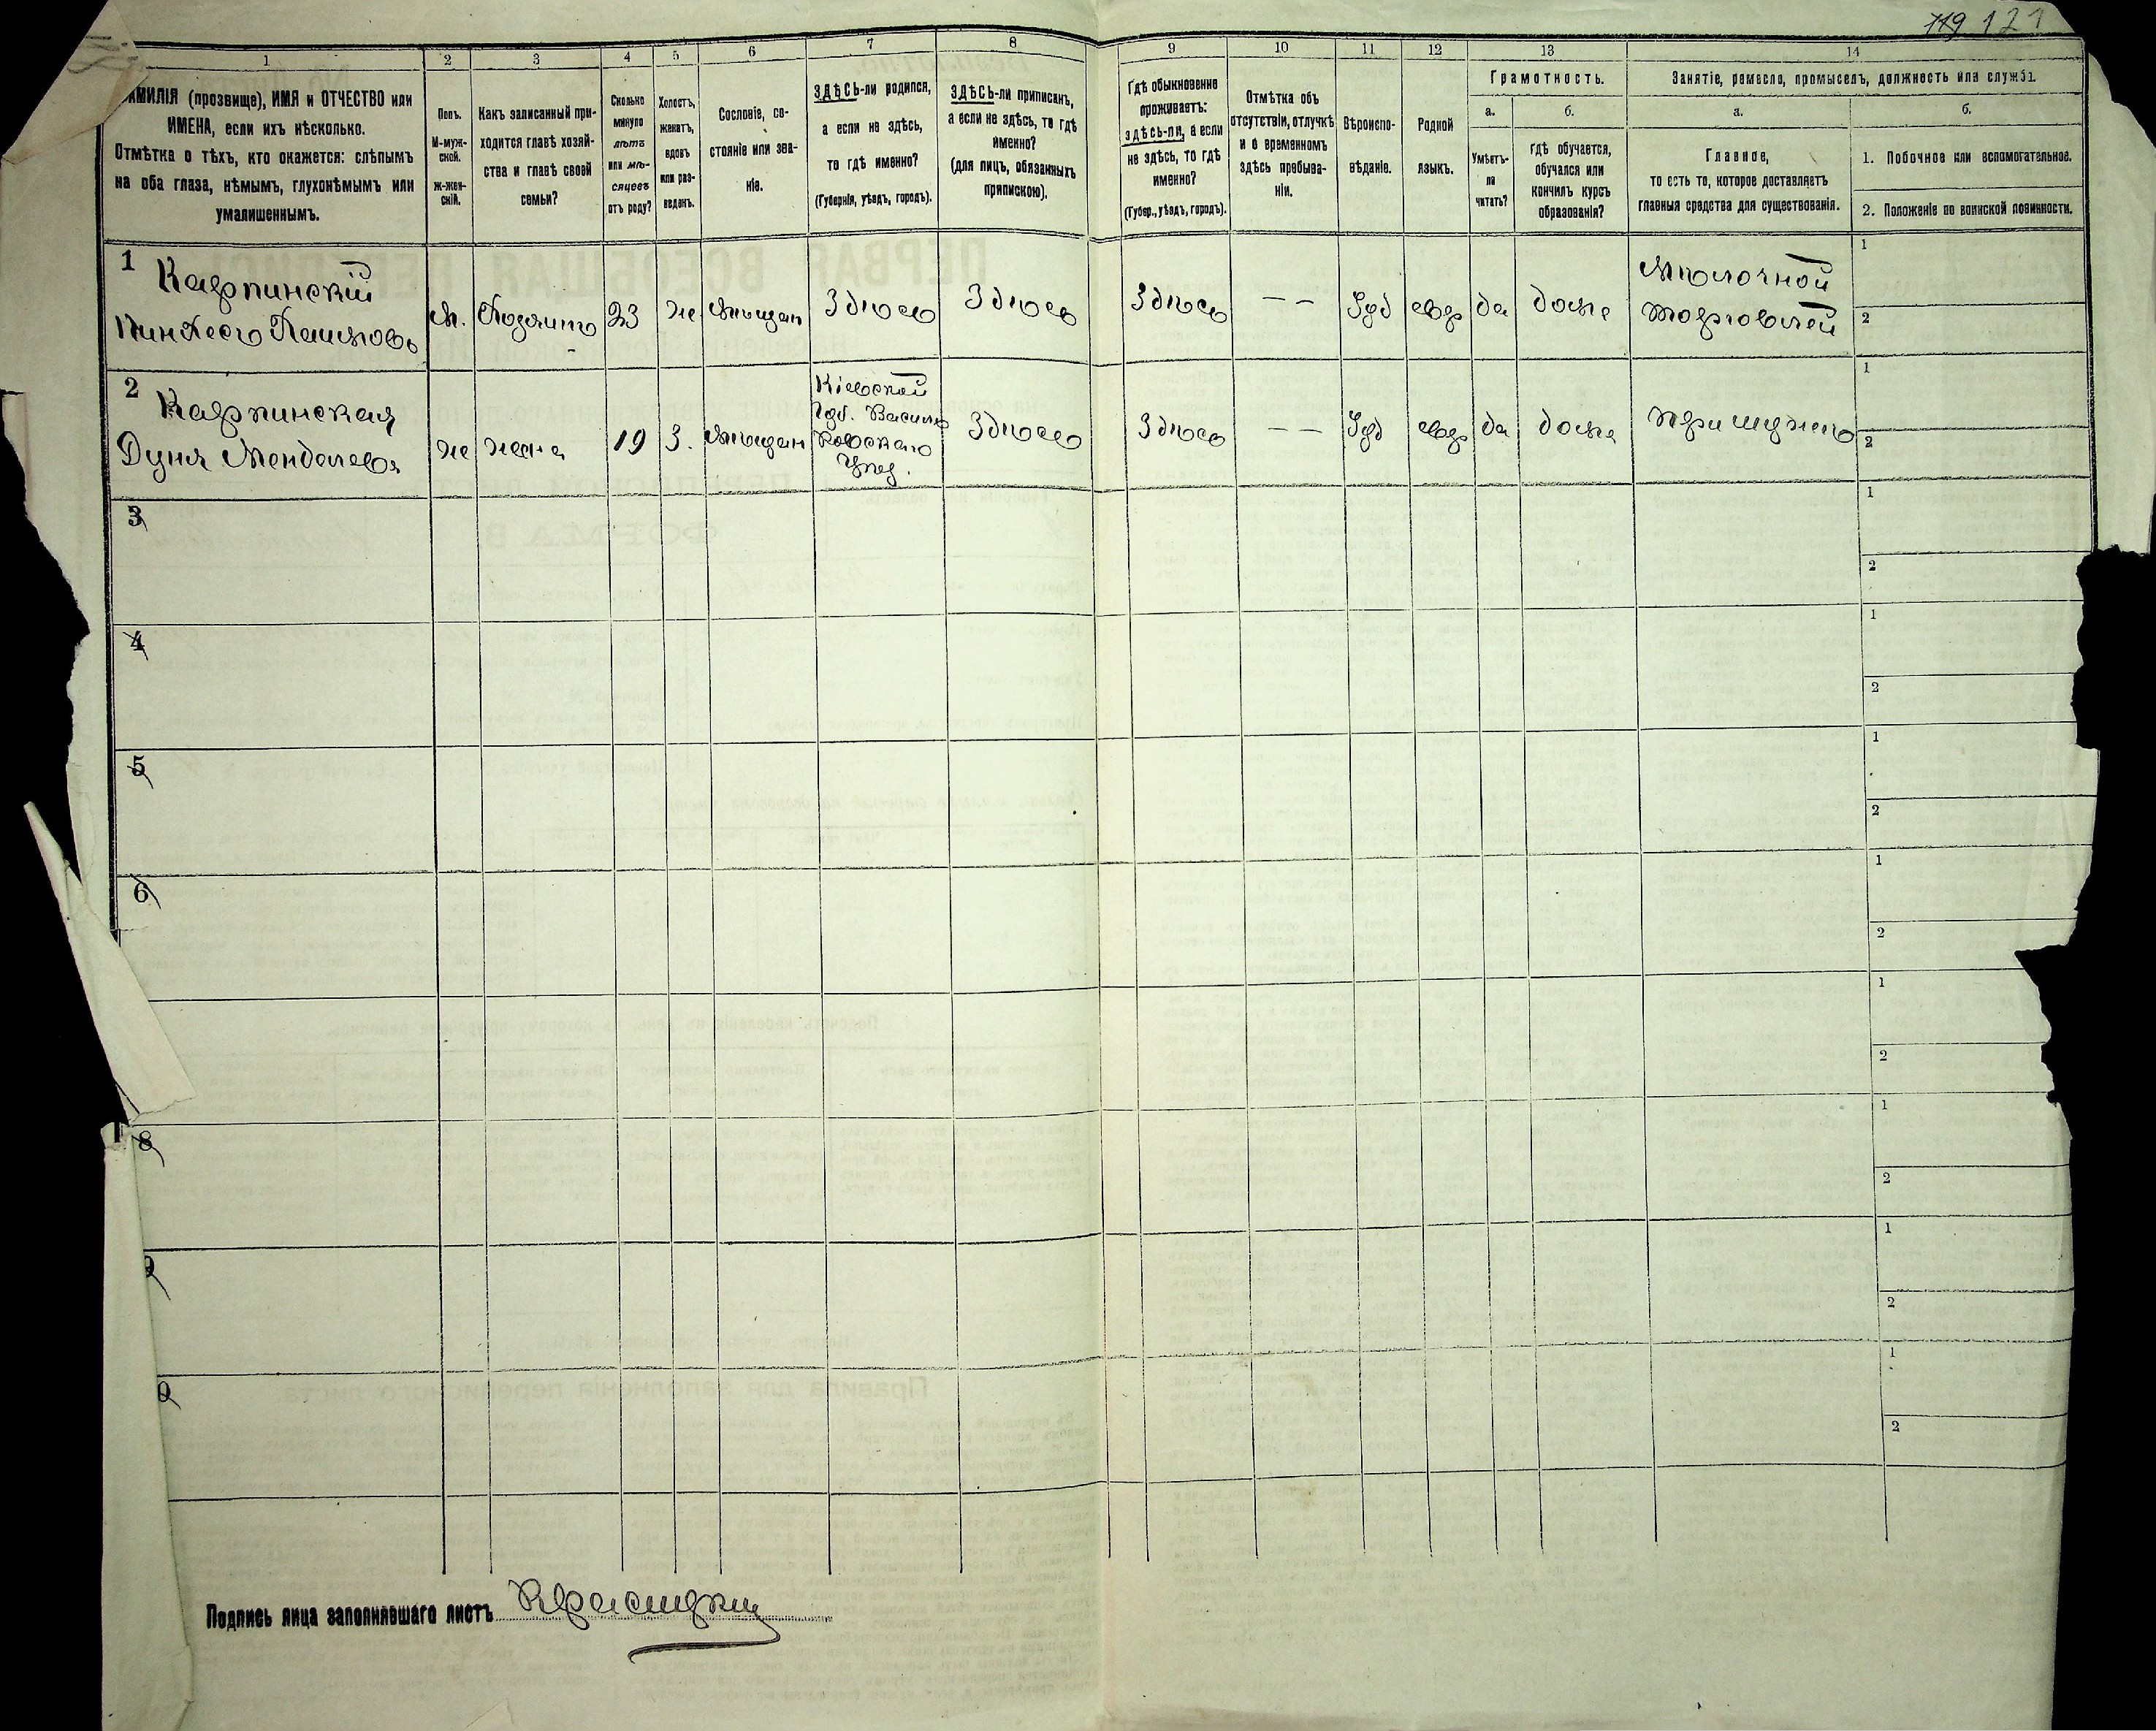 119 121
1 2 3 4 5 6 7 8 9 10 11 12 13 14
ФАМИЛІЯ (прозвище), ИМЯ и ОТЧЕСТВО или
ИМЕНА, если ихъ нѣсколько.
Отмѣтка о тѣхъ, кто окажется: слѣпымъ
на оба глаза, нѣмымъ, глухонѣмымъ или
умалишеннымъ.
Полъ.
М-муж-
ской.
Ж-жен-
скій.
Какъ записанный при-
ходится главѣ хозяй-
ства и главѣ своей
семьи?
Сколько
минуло
лѣтъ
или мѣ-
сяцевъ
отъ роду?
Холостъ,
женатъ,
вдовъ
или раз-
веденъ.
Сословіе, со-
стояніе или зва-
ніе.
ЗДѢСЬ-ли родился,
а если не здѣсь,
то гдѣ именно?
(Губернія, уѣздъ, городъ).
ЗДѢСЬ-ли приписанъ,
а если не здѣсь, то гдѣ
именно?
(для лицъ, обязанныхъ
припискою).
Гдѣ обыкновенно
проживаетъ:
здѣсь-ли, а если
не здѣсь, то гдѣ
именно?
(Губер., уѣздъ, городъ).
Отмѣтка объ
отсутствіи, отлучкѣ
и о временномъ
здѣсь пребыва-
ніи.
Вѣроиспо-
вѣданіе.
Родной
языкъ.
Грамотность.
а.
Умѣетъ-
ли
читать?
б.
гдѣ обучается,
обучался или
кончилъ курсъ
образованія?
Занятіе, ремесло, промыселъ, должность или служба.
а.
Главное,
то есть то, которое доставляетъ
главныя средства для существованія.
б.
1. Побочное или вспомогательное.
2. Положеніе по воинской повинности.
1 Карпинскій
Пинхесъ Пашковъ
М.
Хозяинъ
23
же
мѣщан
Здѣсь
Здѣсь
Здѣсь
— —
Іуд
евр
да
дома
Молочной
торговлей
1
2
2 Карпинская
Дуня Менделева
же
жена
19
З.
мѣщан
Кіевской
Губ. Василь
ковскаго
Уѣз.
Здѣсь
Здѣсь
— —
Іуд
евр
да
дома
При мужѣ
1
2
3
1
2
4
1
2
5
1
2
6
1
2
1
2
8
1
2
9
1
2
0
1
2
Подпись лица заполнявшаго листъ